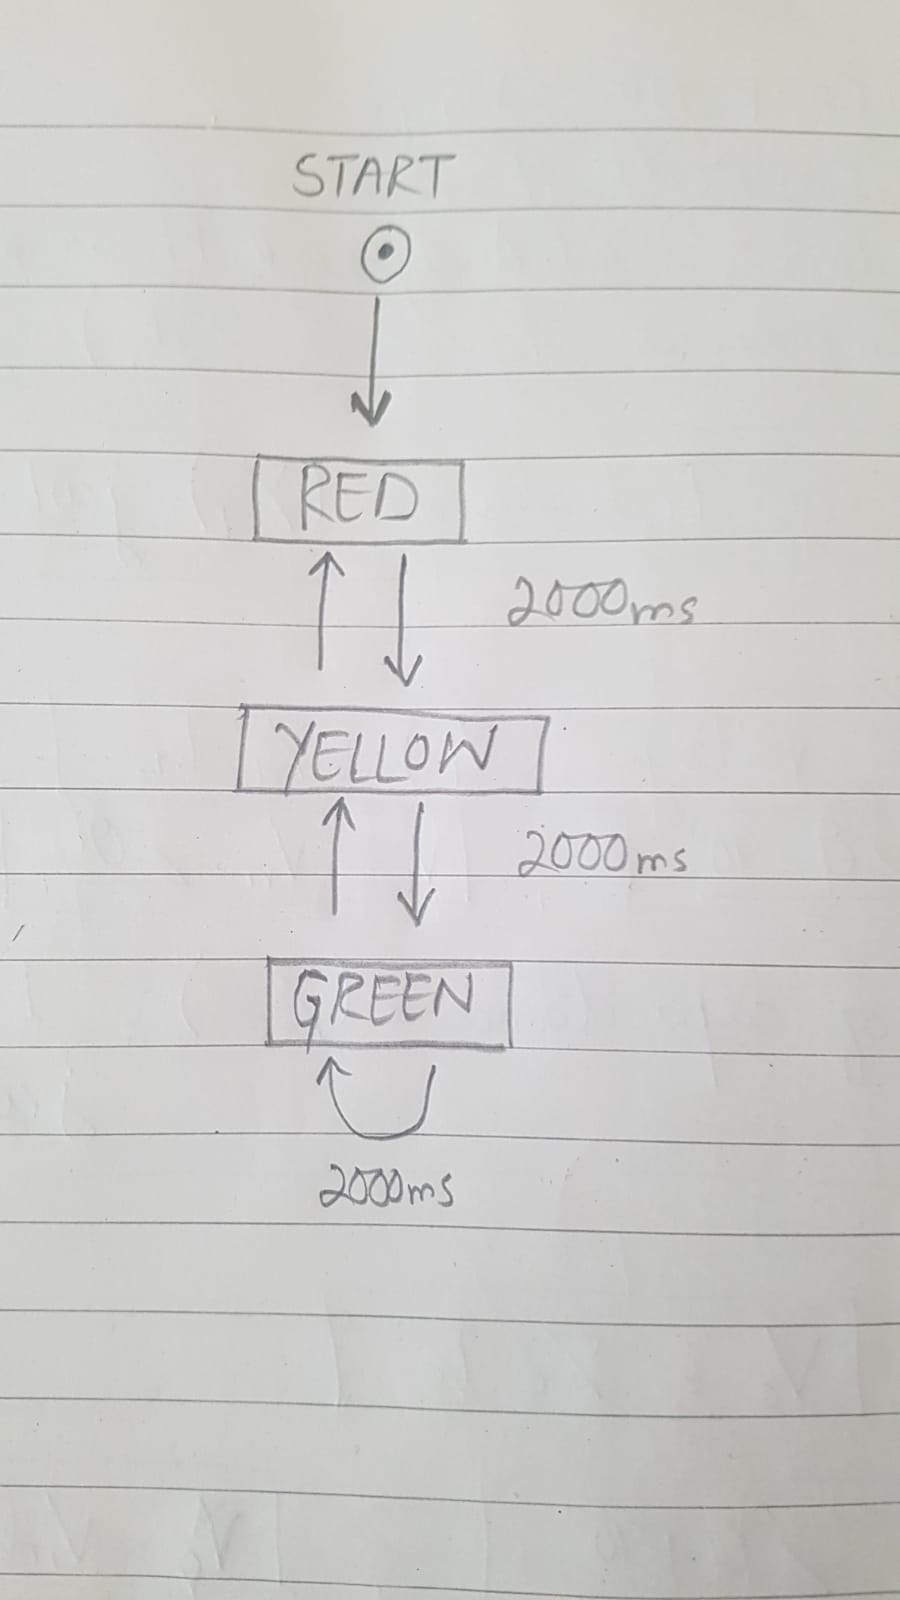 START
RED
2000ms
YELLOW
2000ms
GREEN
2000ms